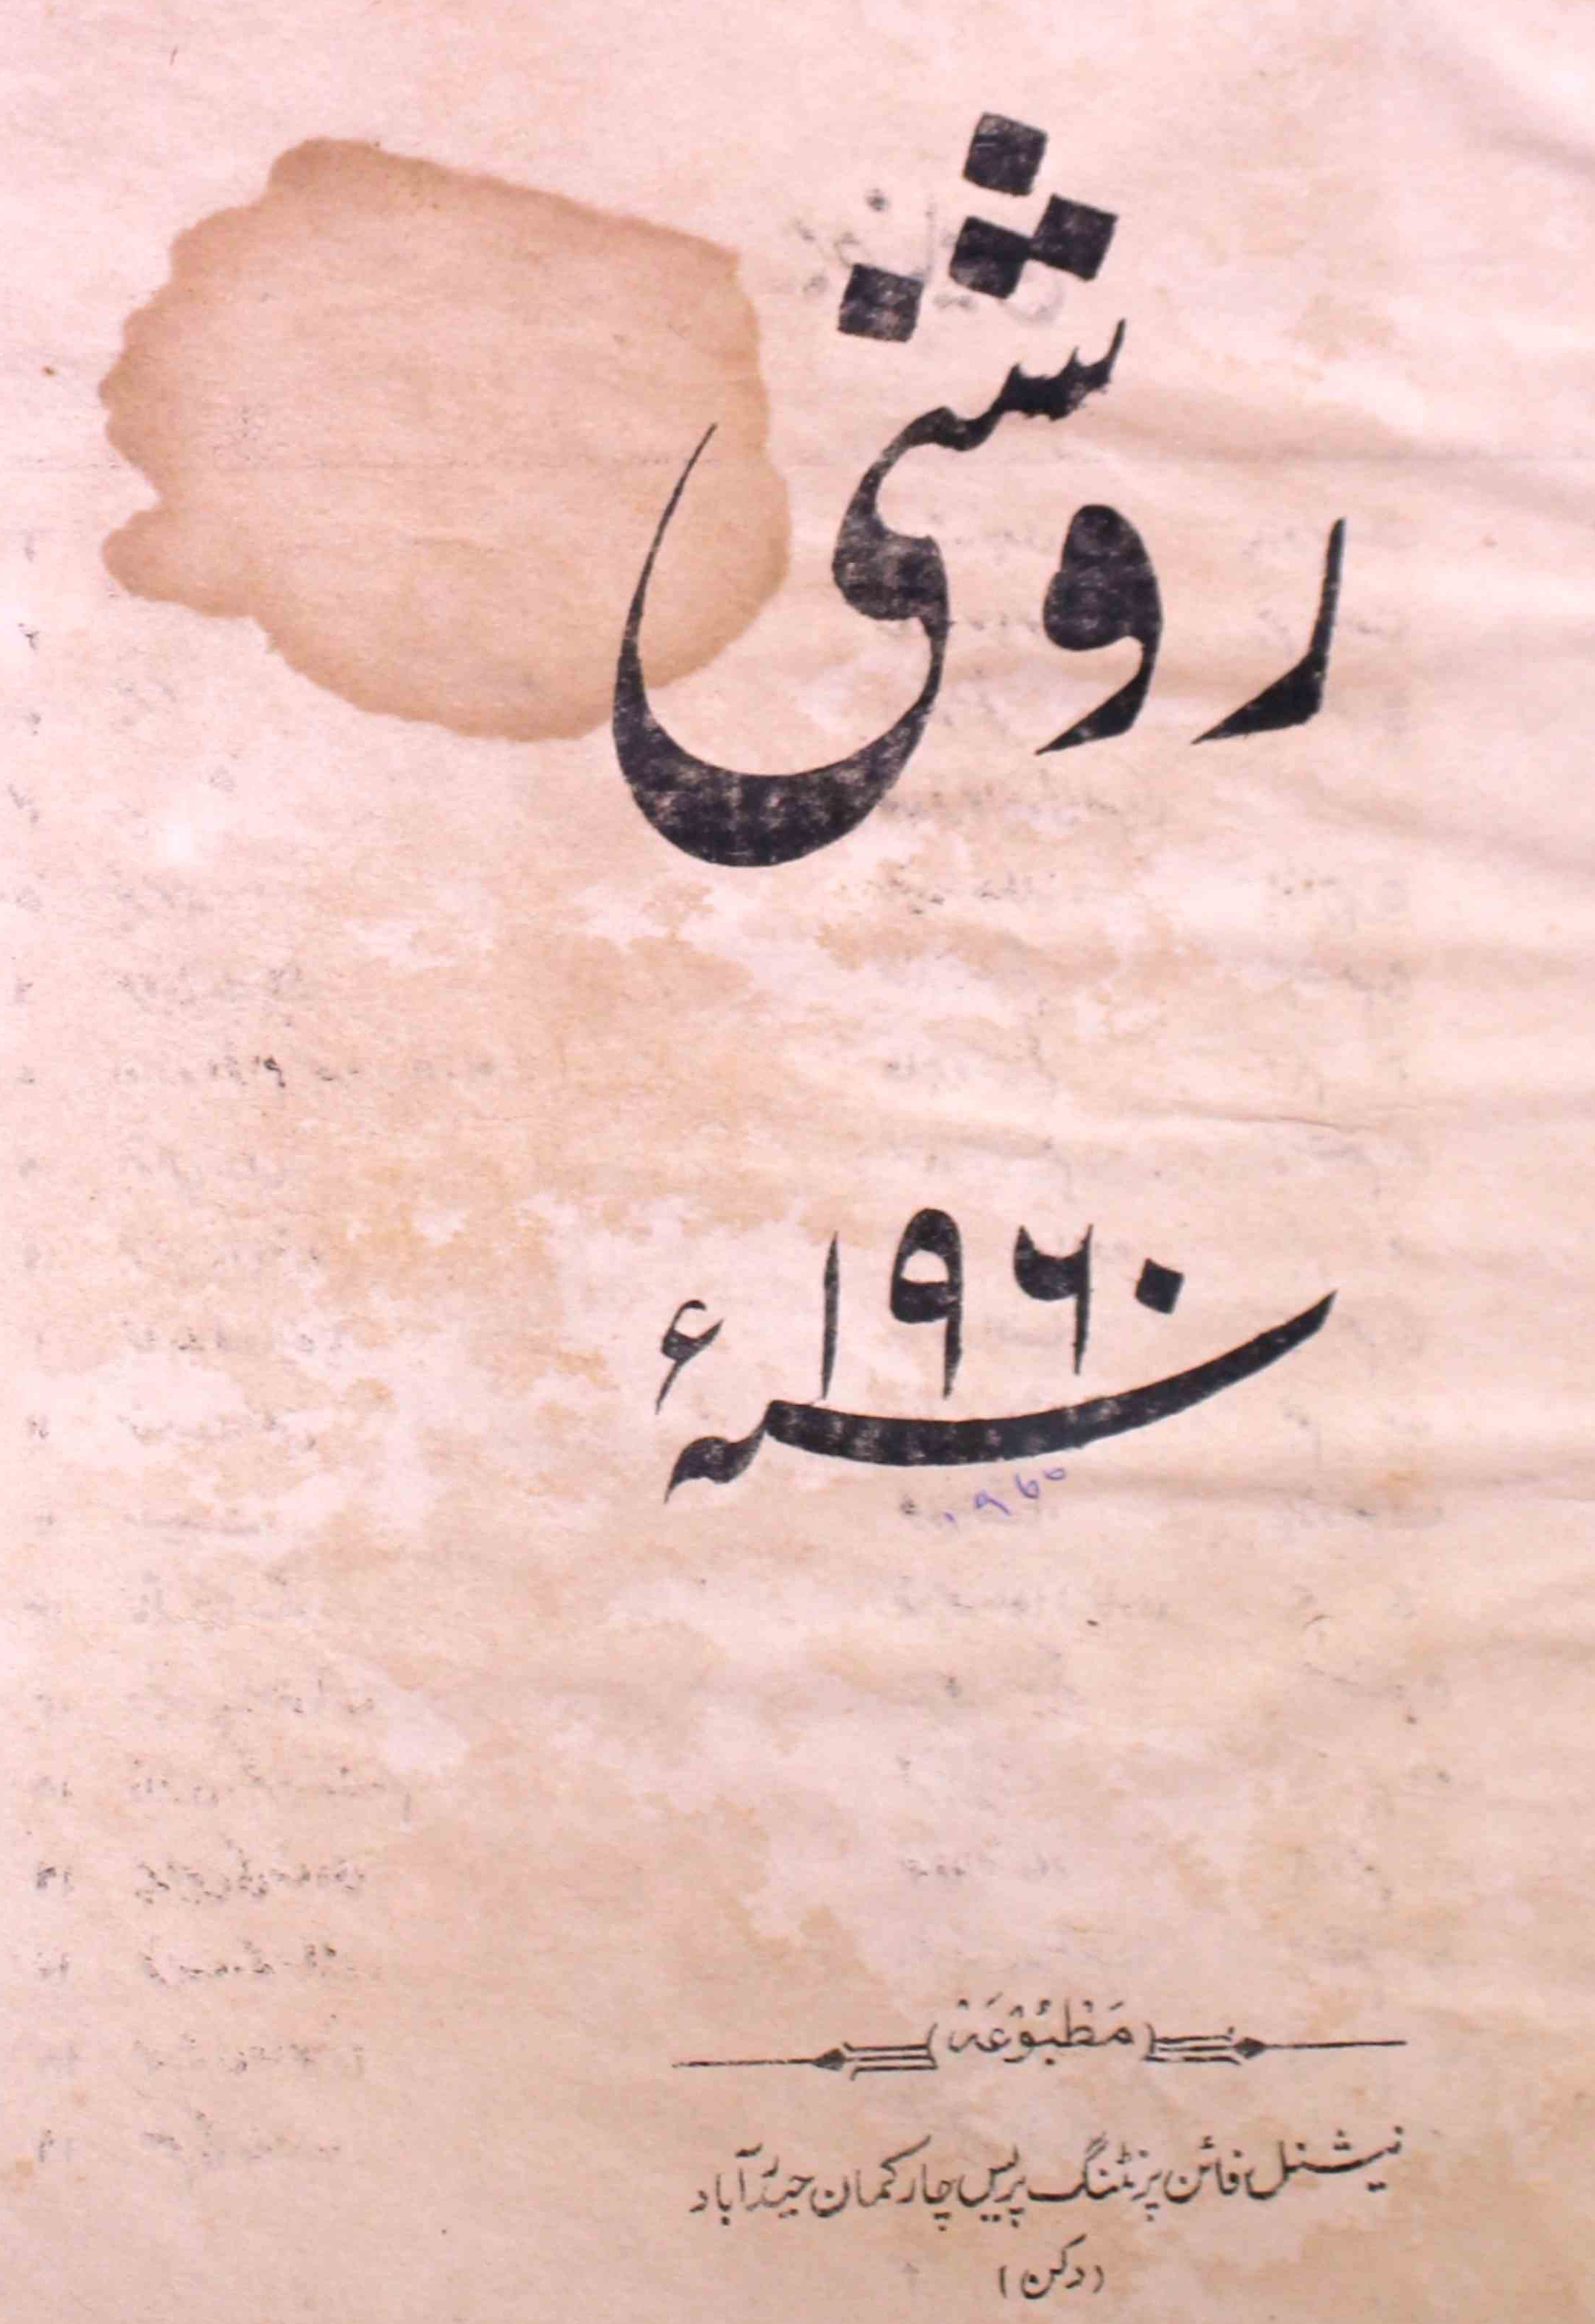 روشنی
۱۹۶۰ سنہ ء
1960
مطبوعہ
نیشنل فائن پرنٹنگ پریس چارکمان حیدرآباد
(دکن)